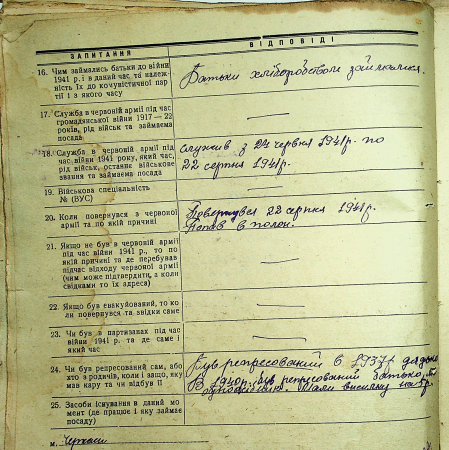 ЗАПИТАННЯ
ВІДПОВІДІ
16. Чим займались батьки до війни
1941 р. і в даний час, та належ-
ність їх до комуністичної пар-
тії і з якого часу
Батьки хліборобством займалися.
17. Служба в червоній армії під час
громадянської війни 1917—22
років, рід військ та займаєма
посада
18. Служба в червоній армії під
час війни 1941 року, який час,
рід військ, останнє військове
звання та займаєма посада
служив з 24 червня 1941р. по
22 серпня 1941р.
19. Військова спеціальність
№ (ВУС)
20. Коли повернувся з червоної
армії та по якій причині
Повернувся 22 серпня 1941р.
Попав в полон.
21. Якщо не був в червоній армії
під час війни 1941 р., то по
якій причині та де перебував
підчас відходу червоної армії
(чим може підтвердити, а коли
свідками то їх адреса)
22. Якщо був евакуйований, то ко
ли повернувся та звідки саме
23. Чи був в партизанах під час
війни 1941 р. та де саме і
який час
24. Чи був репресований сам, або
хто з родичів, коли і защо, яку
мав кару та чи відбув її
Був репресований в 1937р. дядько
В 1940р. був репресований батько,
висилку на 5р.
25. Засоби існування в даний мо
мент (де працює і яку займає
посаду)
м. Черкаси